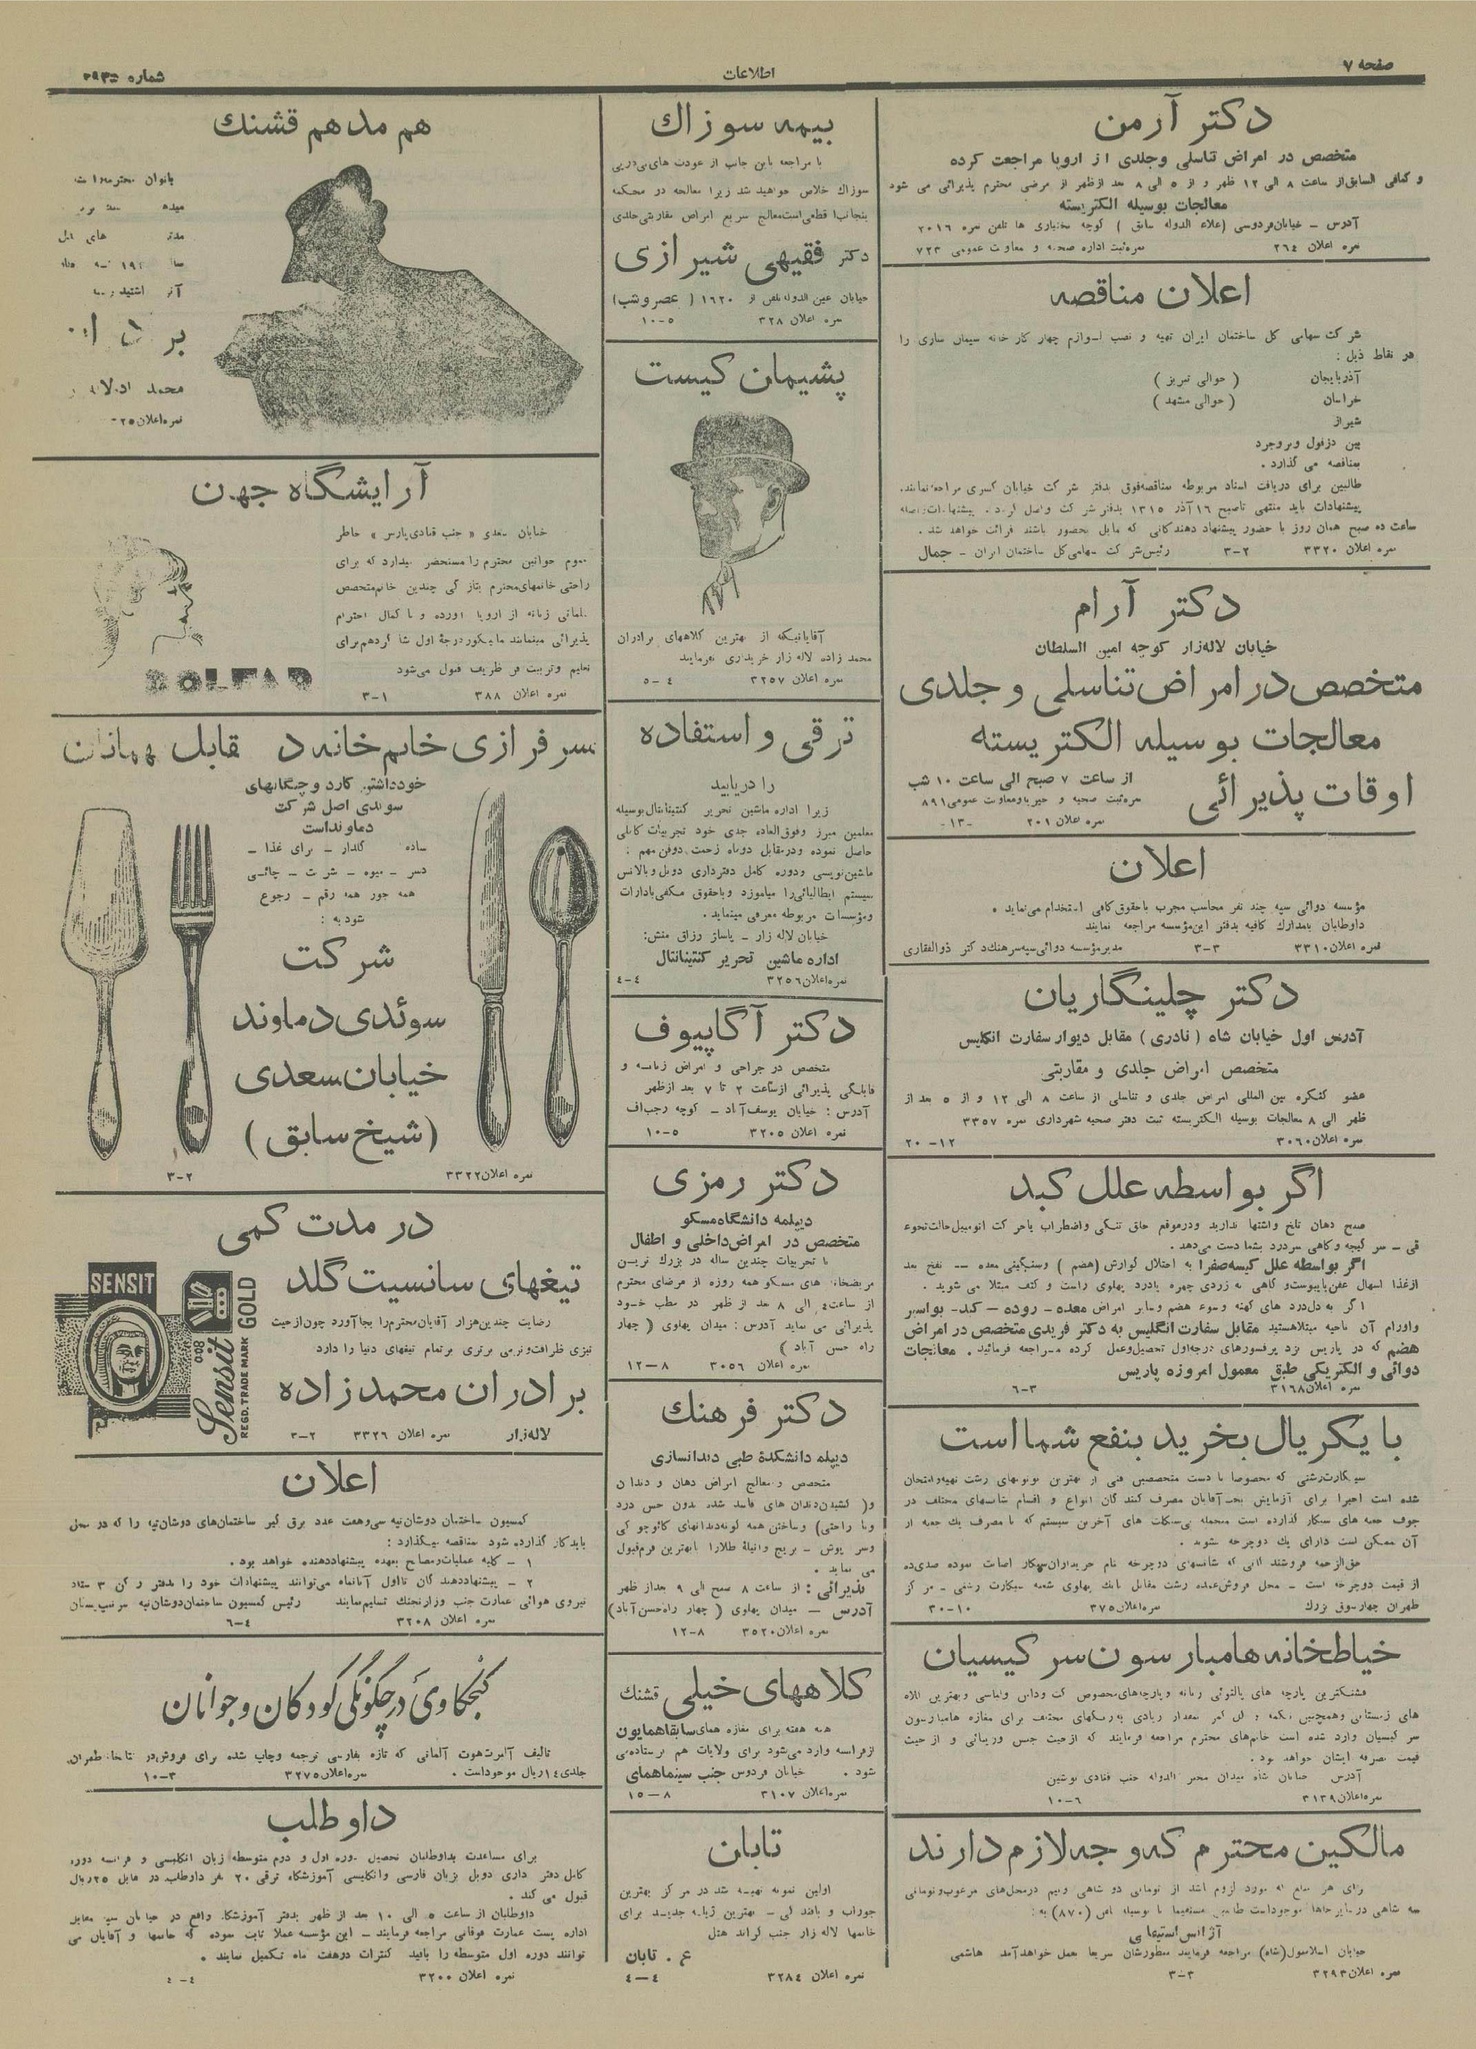 صفحه ۷
اطلاعات
شماره
دکتر آرمن
متخصص در امراض تناسلی وجلدی از اروپا مراجعت کرده
و کمافی السابق از ساعت ۸ الی ۱۲ ظهر و از ۵ الی ۸ بعد ازظهر از مرضی محترم پذیرائی می شود
معالجات بوسیله الکتریسته
آدرس – خیابان فردوسی (علاء الدوله سابق) کوچه بختیاری ها تلفن نمره ۲۰۱۶
نمره اعلان ۲۶٤ نمره ثبت اداره صحیه و معاونت عمومی ۷۲۳
اعلان مناقصه
شرکت سهامی کل ساختمان ایران تهیه و نصب لوازم چهار کارخانه سیمان سازی را
در نقاط ذیل :
آذربایجان ( حوالی تبریز )
خراسان ( حوالی مشهد )
شیراز
بین دزفول وبروجرد
بمناقصه می گذارد .
طالبین برای دریافت اسناد مربوطه مناقصه فوق بدفتر شرکت خیابان کسری مراجعه نمایند.
پیشنهادات باید منتهی تاصبح ۱۶ آذر ۱۳۱۵ بدفتر شرکت واصل گردد . پیشنهادات واصله
ساعت ده صبح همان روز با حضور پیشنهاد دهندگانی که مایل بحضور باشند قرائت خواهد شد .
نمره اعلان ۳۳۲۰ ۲–۳ رئیس شرکت سهامی کل ساختمان ایران – جمال
دکتر آرام
خیابان لاله زار کوچه امین السلطان
متخصص در امراض تناسلی و جلدی
معالجات بوسیله الکتریسته
اوقات پذیرائی
از ساعت ۷ صبح الی ساعت ۱۰ شب
نمره ثبت صحیه و خیریه ومعاونت عمومی ۸۹۱
نمره اعلان ۲۰۱ -۱۳-
اعلان
مؤسسه دوائی سپه چند نفر محاسب مجرب باحقوق کافی استخدام می نماید .
داوطلبان بامدارك کافیه بدفتر این مؤسسه مراجعه نمایند
نمره اعلان ۳۳۱۰ ۳–۳ مدیر مؤسسه دوائی سپه سرهنگ دکتر ذوالفقاری
دکتر چلینگاریان
آدرس اول خیابان شاه ( نادری ) مقابل دیوار سفارت انگلیس
متخصص امراض جلدی و مقاربتی
عضو کنگره بین المللی امراض جلدی و تناسلی از ساعت ۸ الی ۱۲ و از ٥ بعد از
ظهر الی ۸ معالجات بوسیله الکتریسته ثبت دفتر صحیه شهرداری نمره ۳۳۵۷
نمره اعلان ۳۰۶۰ ۱۲–۲۰
اگر بواسطه علل کبد
صبح دهان تلخ واشتها ندارید ودرموقع حلق تنگی واضطراب یاحرکت اتومبیل حالت تحوع
قی – سر گیجه وگاهی سردرد بشما دست می دهد .
اگر بواسطه علل کیسه صفرا به اختلال گوارش (هضم ) وسنگینی معده –– نفخ بعد
ازغذا اسهال عفن یا یبوست و گاهی به زردی چهره یادرد پهلوی راست و کتف مبتلا می شوید .
اگر به دل درد های کهنه وسوء هضم وسایر امراض معده – روده – کبد – بواسیر
واورام آن ناحیه مبتلا هستید مقابل سفارت انگلیس به دکتر فریدی متخصص در امراض
هضم که در پاریس نزد پرفسورهای درجه اول تحصیل وعمل کرده مراجعه فرمائید . معالجات
دوائی و الکتریکی طبق معمول امروزه پاریس
نمره اعلان ۳۱۶۸ ۳–۶
با یکریال بخرید بنفع شما است
سیگارت رشتی که مخصوصا با دست متخصصین فنی از بهترین توتونهای رشت تهیه وامتحان
شده است اخیرا برای آزمایش بخت آقایان مصرف کنند گان انواع و اقسام شانسهای مختلف در
جوف جعبه های سیگار گذارده است منجمله بی سکلت های آخرین سیستم که با مصرف یك جعبه از
آن ممکن است دارای یك دوچرخه بشوید .
از قیمت دوچرخه است – محل فروش عمده رشت مقابل بانك پهلوی شعبه سیگارت رشتی – مرکز
طهران چهارسوق بزرك نمره اعلان ۳۷۵ ۱۰–۳۰
خیاطخانه هامبارسون سر کیسیان
قشنگترین پارچه های پالتوئی زنانه و پارچه های مخصوص کت ودامن ولباسی وبهترین
سر کیسیان وارد شده است خانم های محترم مراجعه فرمایند که ازحیث جنس وزیبائی و از حیث
قیمت بصرفه ایشان خواهد بود .
نمره اعلان ۳۱۳۹ ۶–۱۰
مالکین محترم که وجه لازم دارند
نمره اعلان ۳۲۹۳ ۳–۳
بیمه سوزاك
با مراجعه باین جانب از عودت های پی در پی
سوزاك خلاص خواهید شد زیرا معالجه در محکمه
بنجانب قطعی است معالج سریع امراض مقاربتی جلدی
دکتر فقیهی شیرازی
خیابان عین الدوله تلفن از ۱٦۲۰ ( عصر و شب)
نمره اعلان ۳۲۸ ۵–۱۰
پشیمان کیست
آقایانیکه از بهترین کلاههای برادران
محمد زاده لاله زار خریداری نفرمایند
نمره اعلان ۳۲۵۷ ٤–٥
ترقی و استفاده
را دریابید
زیرا اداره ماشین تحریر کنتینانتال بوسیله
معلمین مبرز وفوق العاده جدی خود تجربیات کاملی
حاصل نموده ودرمقابل دوماه زحمت دوفن مهم :
ماشین نویسی ودوره کامل دفترداری دوبل وبالانس
سیستم ایطالیائی را میاموزد وباحقوق مکفی بادارات
ومؤسسات مربوطه معرفی مینماید .
خیابان لاله زار – پاساژ رزاق منش:
اداره ماشین تحریر کنتینانتال
نمره اعلان ۳۲۵٦ ٤–٤
دکتر آگاپیوف
متخصص در جراحی و امراض زنانه و
قابلگی پذیرائی ازساعت ۲ تا ۷ بعد ازظهر
آدرس : خیابان یوسف آباد – کوچه رجب اف
نمره اعلان ۳۲۰۵ ۵–۱۰
دکتر رمزی
دیپلمه دانشگاه مسکو
متخصص در امراض داخلی و اطفال
با تجربیات چندین ساله در بزرك ترین
مریضخانه های مسکو همه روزه از مرضای محترم
از ساعت ٤ الی ۸ بعد از ظهر در مطب خود
پذیرائی می نماید آدرس : میدان پهلوی ( چهار
راه حسن آباد )
نمره اعلان ۳۰۵٦ ۸–۱۲
دکتر فرهنك
دیپلمه دانشکدهٔ طبی دندانسازی
متخصص و معالج امراض دهان و دندان
و( کشیدن دندان های فاسد شده بدون حس درد
وبا راحتی) وساختن همه گونه دندانهای کائوچوکی
می نماید .
پذیرائی : از ساعت ۸ صبح الی ۹ بعد از ظهر
آدرس – میدان پهلوی ( چهار راه حسن آباد)
نمره اعلان ۳۵۲۰ ۸–۱۲
کلاههای خیلی قشنك
همه هفته برای مغازه همای سابقا همایون
ازفرانسه وارد می شود برای ولایات هم فرستاده می
شود . خیابان فردوسی جنب سینما همای
نمره اعلان ۳۱۰۷ ۸–۱۵
تابان
اولین نمونه تهیه شد در مرکز بهترین
خانمها لاله زار جنب گراند هتل
ع . تابان
نمره اعلان ۳۲۸٤ ٤–٤
هم مد هم قشنك
بانوان
محمد
نمره اعلان
آرایشگاه جهن
خیابان سعدی « جنب قنادی پارس » خاطر
عموم خوانین محترم را مستحضر میدارد که برای
راحتی خانمهای محترم بتاز گی چندین خانم متخصص
آلمانی زنانه از اروپا آورده و با کمال احترام
تعلیم وتربیت فر ظریف قبول می شود
نمره اعلان ۳۸۸ ۱–۳
سرفرازی خانم خانه د
خودداشتن کارد و چنگالهای
سوئدی اصل شرکت
دماوند است
ساده گلدار – برای غذا –
دسر – میوه – شربت – چائی
همه جور همه رقم – رجوع
شود به :
شرکت
سوئدی دماوند
خیابان سعدی
(شیخ سابق)
نمره اعلان ۳۳۲۲ ۲–۳
در مدت کمی
تیغهای سانسیت گلد
رضایت چندین هزار آقایان محترم را بجا آورد چون از حیث
تیزی ظرافت ونرمی برتری بر تمام تیغهای دنیا را دارد
برادران محمدزاده
لاله زار نمره اعلان ۳۳۲٦ ۲–۳
SENSIT
GOLD
0.08
Sensit
REGD. TRADE MARK
اعلان
کمیسیون ساختمان دوشان تپه سی وهفت عدد برق گیر ساختمان های دوشان تپه را که در محل
باید کار گذارده شود بمناقصه میگذارد :
۱ – کلیه عملیات ومصالح بعهده پیشنهاددهنده خواهد بود .
نیروی هوائی عمارت جنب وزارتجنك تسلیم نمایند رئیس کمیسیون ساختمان دوشان تپه سرتیپ
نمره اعلان ۳۲۰۸ ٤–٦
کنجکاوی در چگونگی کودکان و جوانان
تالیف آلمرت هوت آلمانی که تازه بفارسی ترجمه وچاپ شده برای فروش در
جلدی ۱٤ ریال موجود است . نمره اعلان ۳۲۷۵ ۳–۱۰
داوطلب
برای مساعدت بداوطلبان تحصیل دوره اول و دوم متوسطه زبان انگلیسی و فرانسه دوره
کامل دفتر داری دوبل بزبان فارسی وانگلیسی آموزشگاه ترقی ۲۰ نفر داوطلب در مقابل ۲۵ ریال
قبول می کند .
داوطلبان از ساعت ۵ الی ۱۰ بعد از ظهر بدفتر آموزشگاه واقع در خیابان سپه مقابل
اداره پست عمارت فوقانی مراجعه فرمایند – این مؤسسه عملا ثابت نموده که خانمها و آقایان می
توانند دوره اول متوسطه را باقید کنترات درهفت ماه تکمیل نمایند .
نمره اعلان ۳۲۰۰ ٤–٤